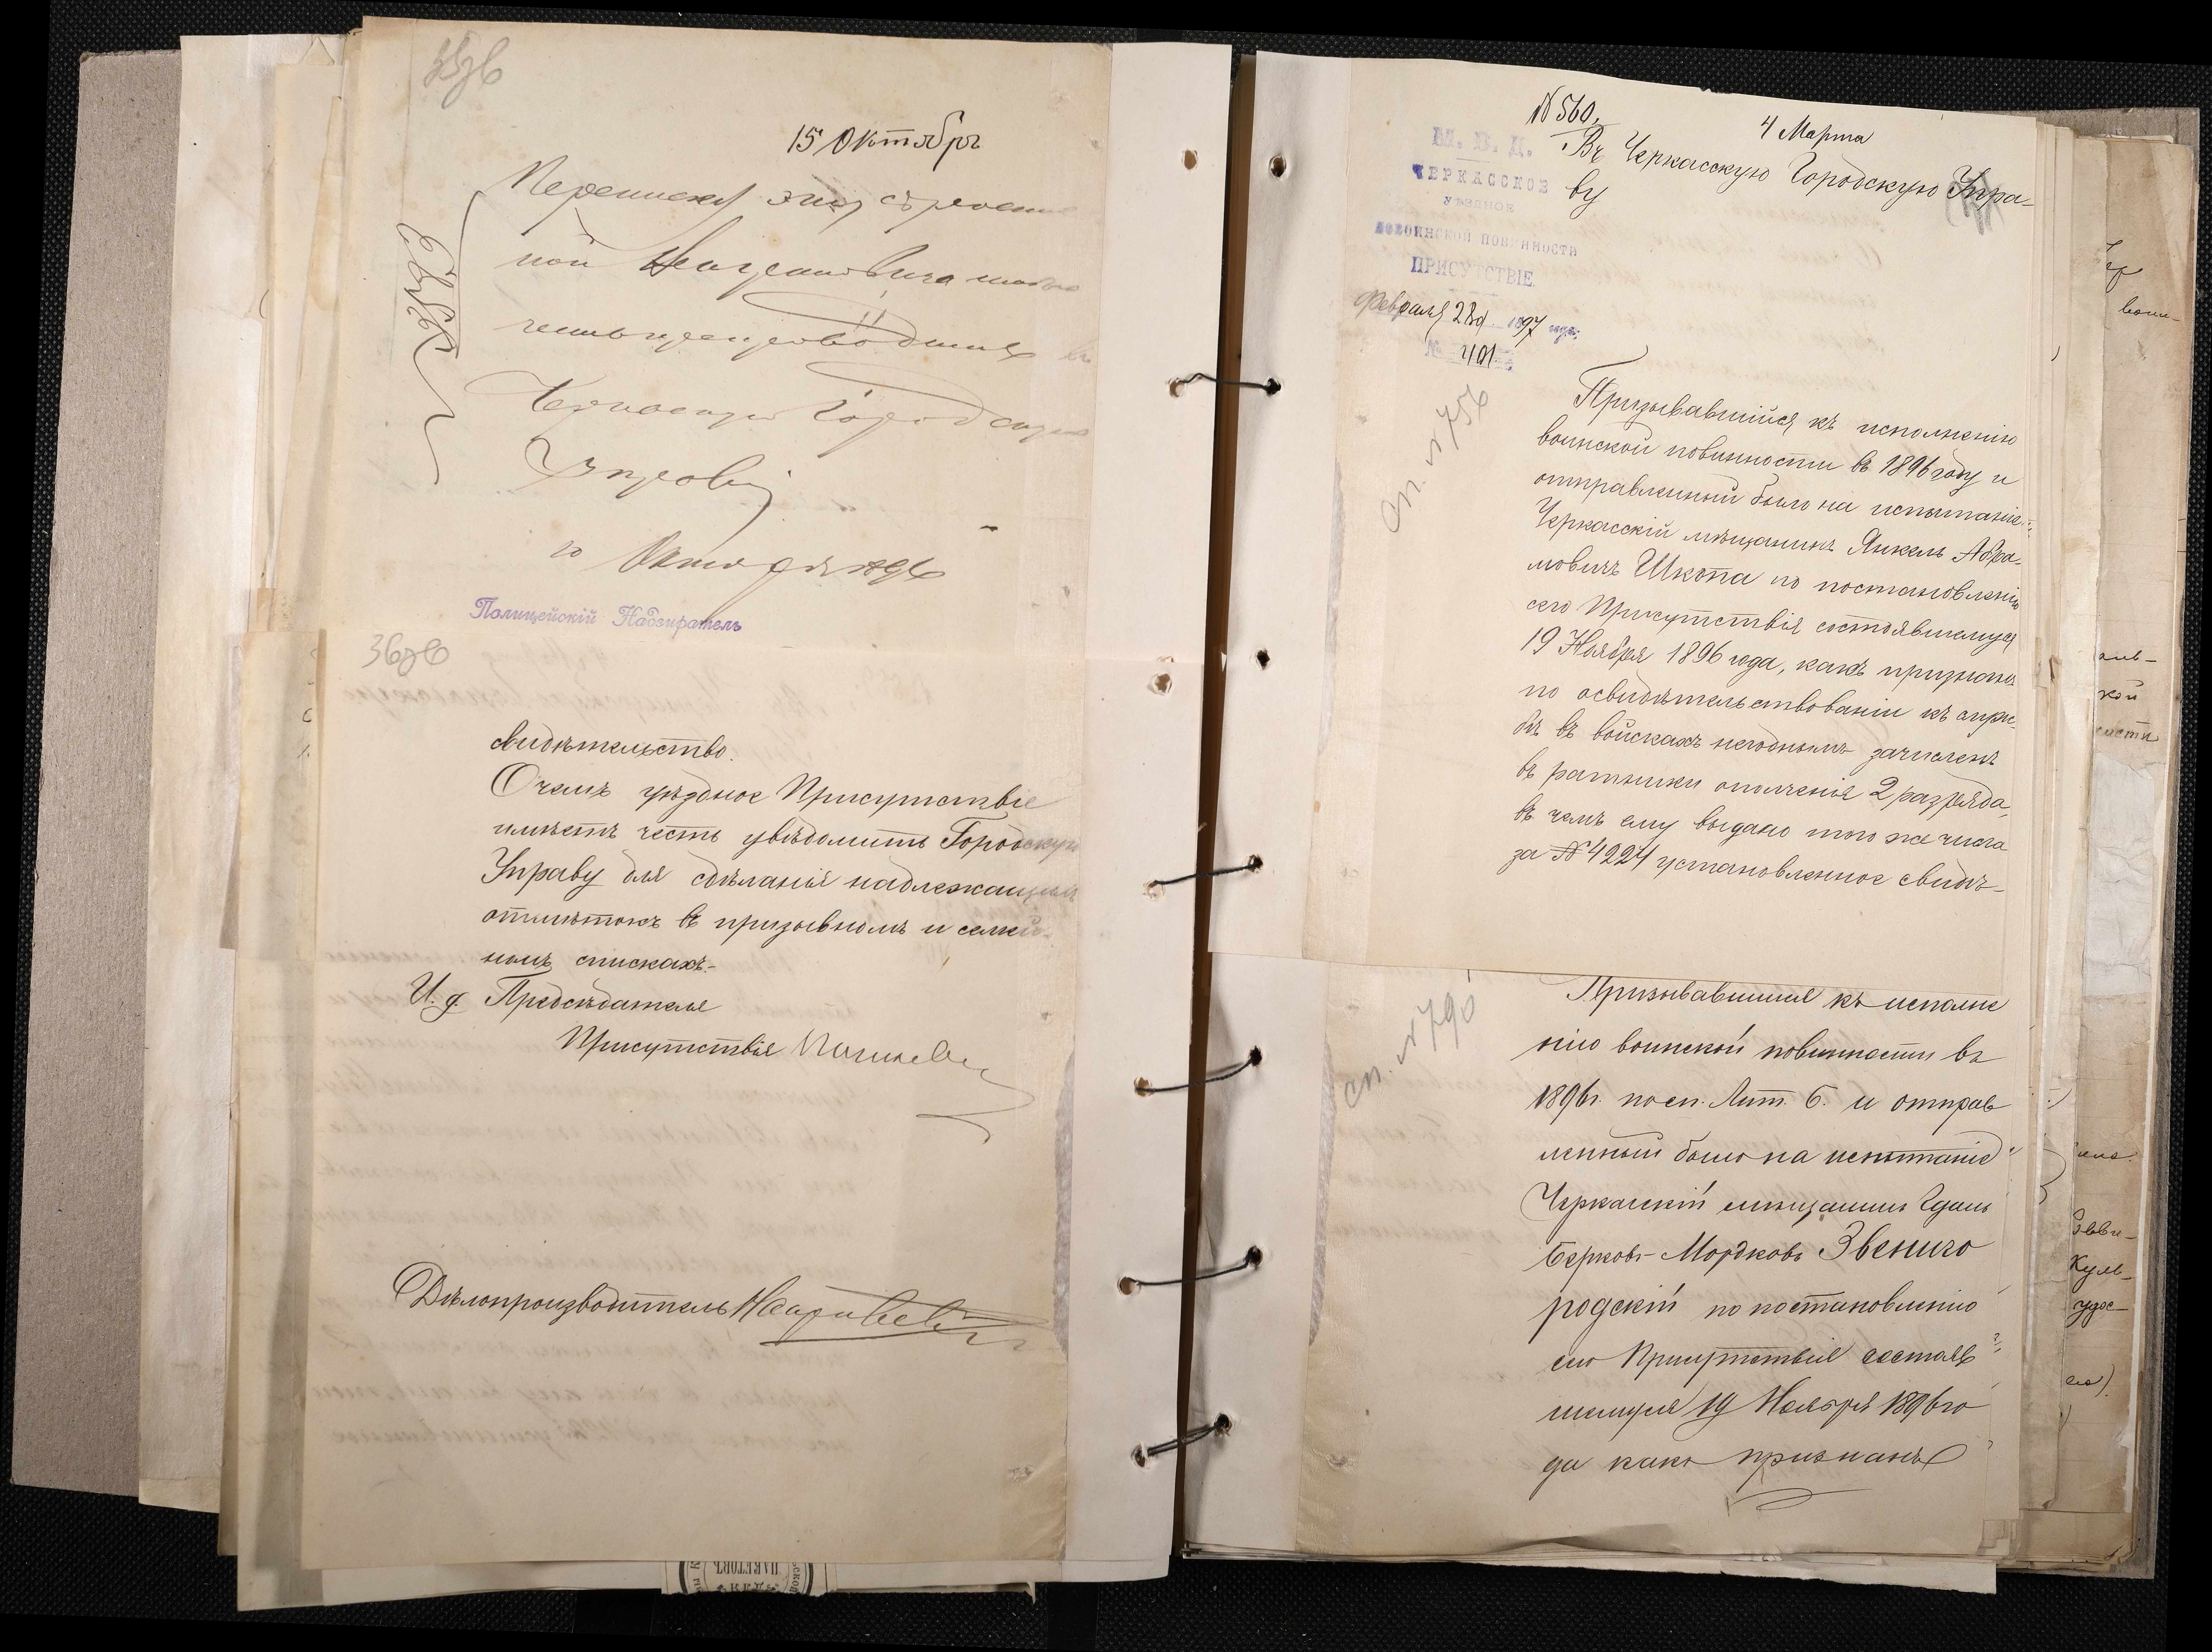 15 Октября
Переписка эта
ной
Городскую
Управу
Октября 1896
Полицейскій Надзиратель
свидѣтельство.
О чемъ уѣздное Присутствіе
имѣетъ честь увѣдомить Городскую
Управу для сдѣланія надлежащихъ
отмѣтокъ въ призывномъ и семей-
номъ спискахъ.-
И. д. Предсѣдателя
Присутствія
Дѣлопроизводитель
№ 560.
4 Марта
Въ Черкасскую Городскую Упра-
ву
М. В. Д.
ЧЕРКАССКОЕ
УѢЗДНОЕ
ПО ВОИНСКОЙ ПОВИННОСТИ
ПРИСУТСТВІЕ.
Февраля 28 д. 1897 года.
№ 401
сп. № 756
Призывавшійся къ исполненію
воинской повинности въ 1896 году и
отправленный было на испытаніе
Черкасскій мѣщанинъ Янкель Абра-
мовичъ Шкопа по постановленію
сего Присутствія состоявшемуся
19 Ноября 1896 года, какъ признанъ
по освидѣтельствованіи къ служ-
бѣ въ войскахъ негоднымъ зачисленъ
въ ратники ополченія 2 разряда,
въ чемъ ему выдано того же числа
за № 4224 установленное свидѣ-
сп. № 790
Призывавшійся къ исполне
нію воинской повинности въ
1896 г. по сп. Лит. Б. и отправ
ленный было на испытаніе
Черкасскій мѣщанинъ Гдаль
Берковъ-Мордковъ Звениго
родскій по постановленію
сего Присутствія состояв
шемуся 19 Ноября 1896 го
да какъ признанъ